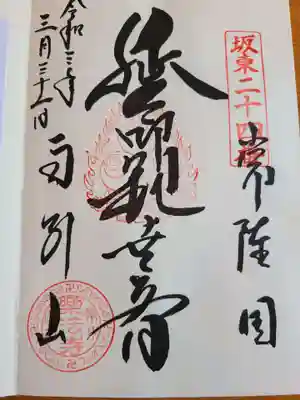 坂東二十四
常陸国
延命観世音
令和三年
三月三十一日
雨引山